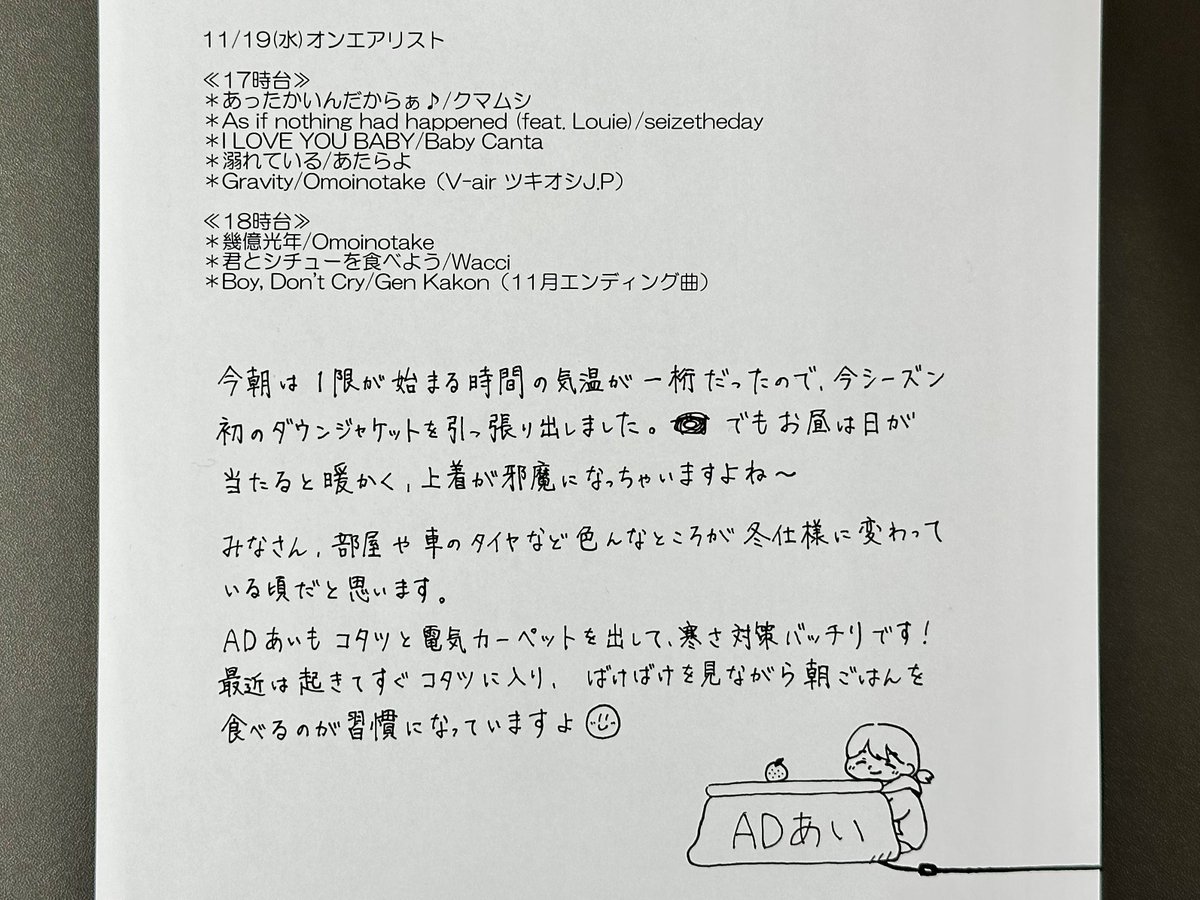 11/19(水)オンエアリスト
≪17時台≫
＊あったかいんだからぁ♪/クマムシ
＊As if nothing had happened (feat. Louie)/seizetheday
＊I LOVE YOU BABY/Baby Canta
＊溺れている/あたらよ
＊Gravity/Omoinotake（V-air ツキオシJ.P）
≪18時台≫
＊幾億光年/Omoinotake
＊君とシチューを食べよう/Wacci
＊Boy, Don't Cry/Gen Kakon（11月エンディング曲）
今朝は1限が始まる時間の気温が一桁だったので、今シーズン
初のダウンジャケットを引っ張り出しました。でもお昼は日が
当たると暖かく、上着が邪魔になっちゃいますよね〜
みなさん、部屋や車のタイヤなど色んなところが冬仕様に変わって
いる頃だと思います。
ADあいもコタツと電気カーペットを出して、寒さ対策バッチリです!
最近は起きてすぐコタツに入り、ばけばけを見ながら朝ごはんを
食べるのが習慣になっていますよ
ADあい